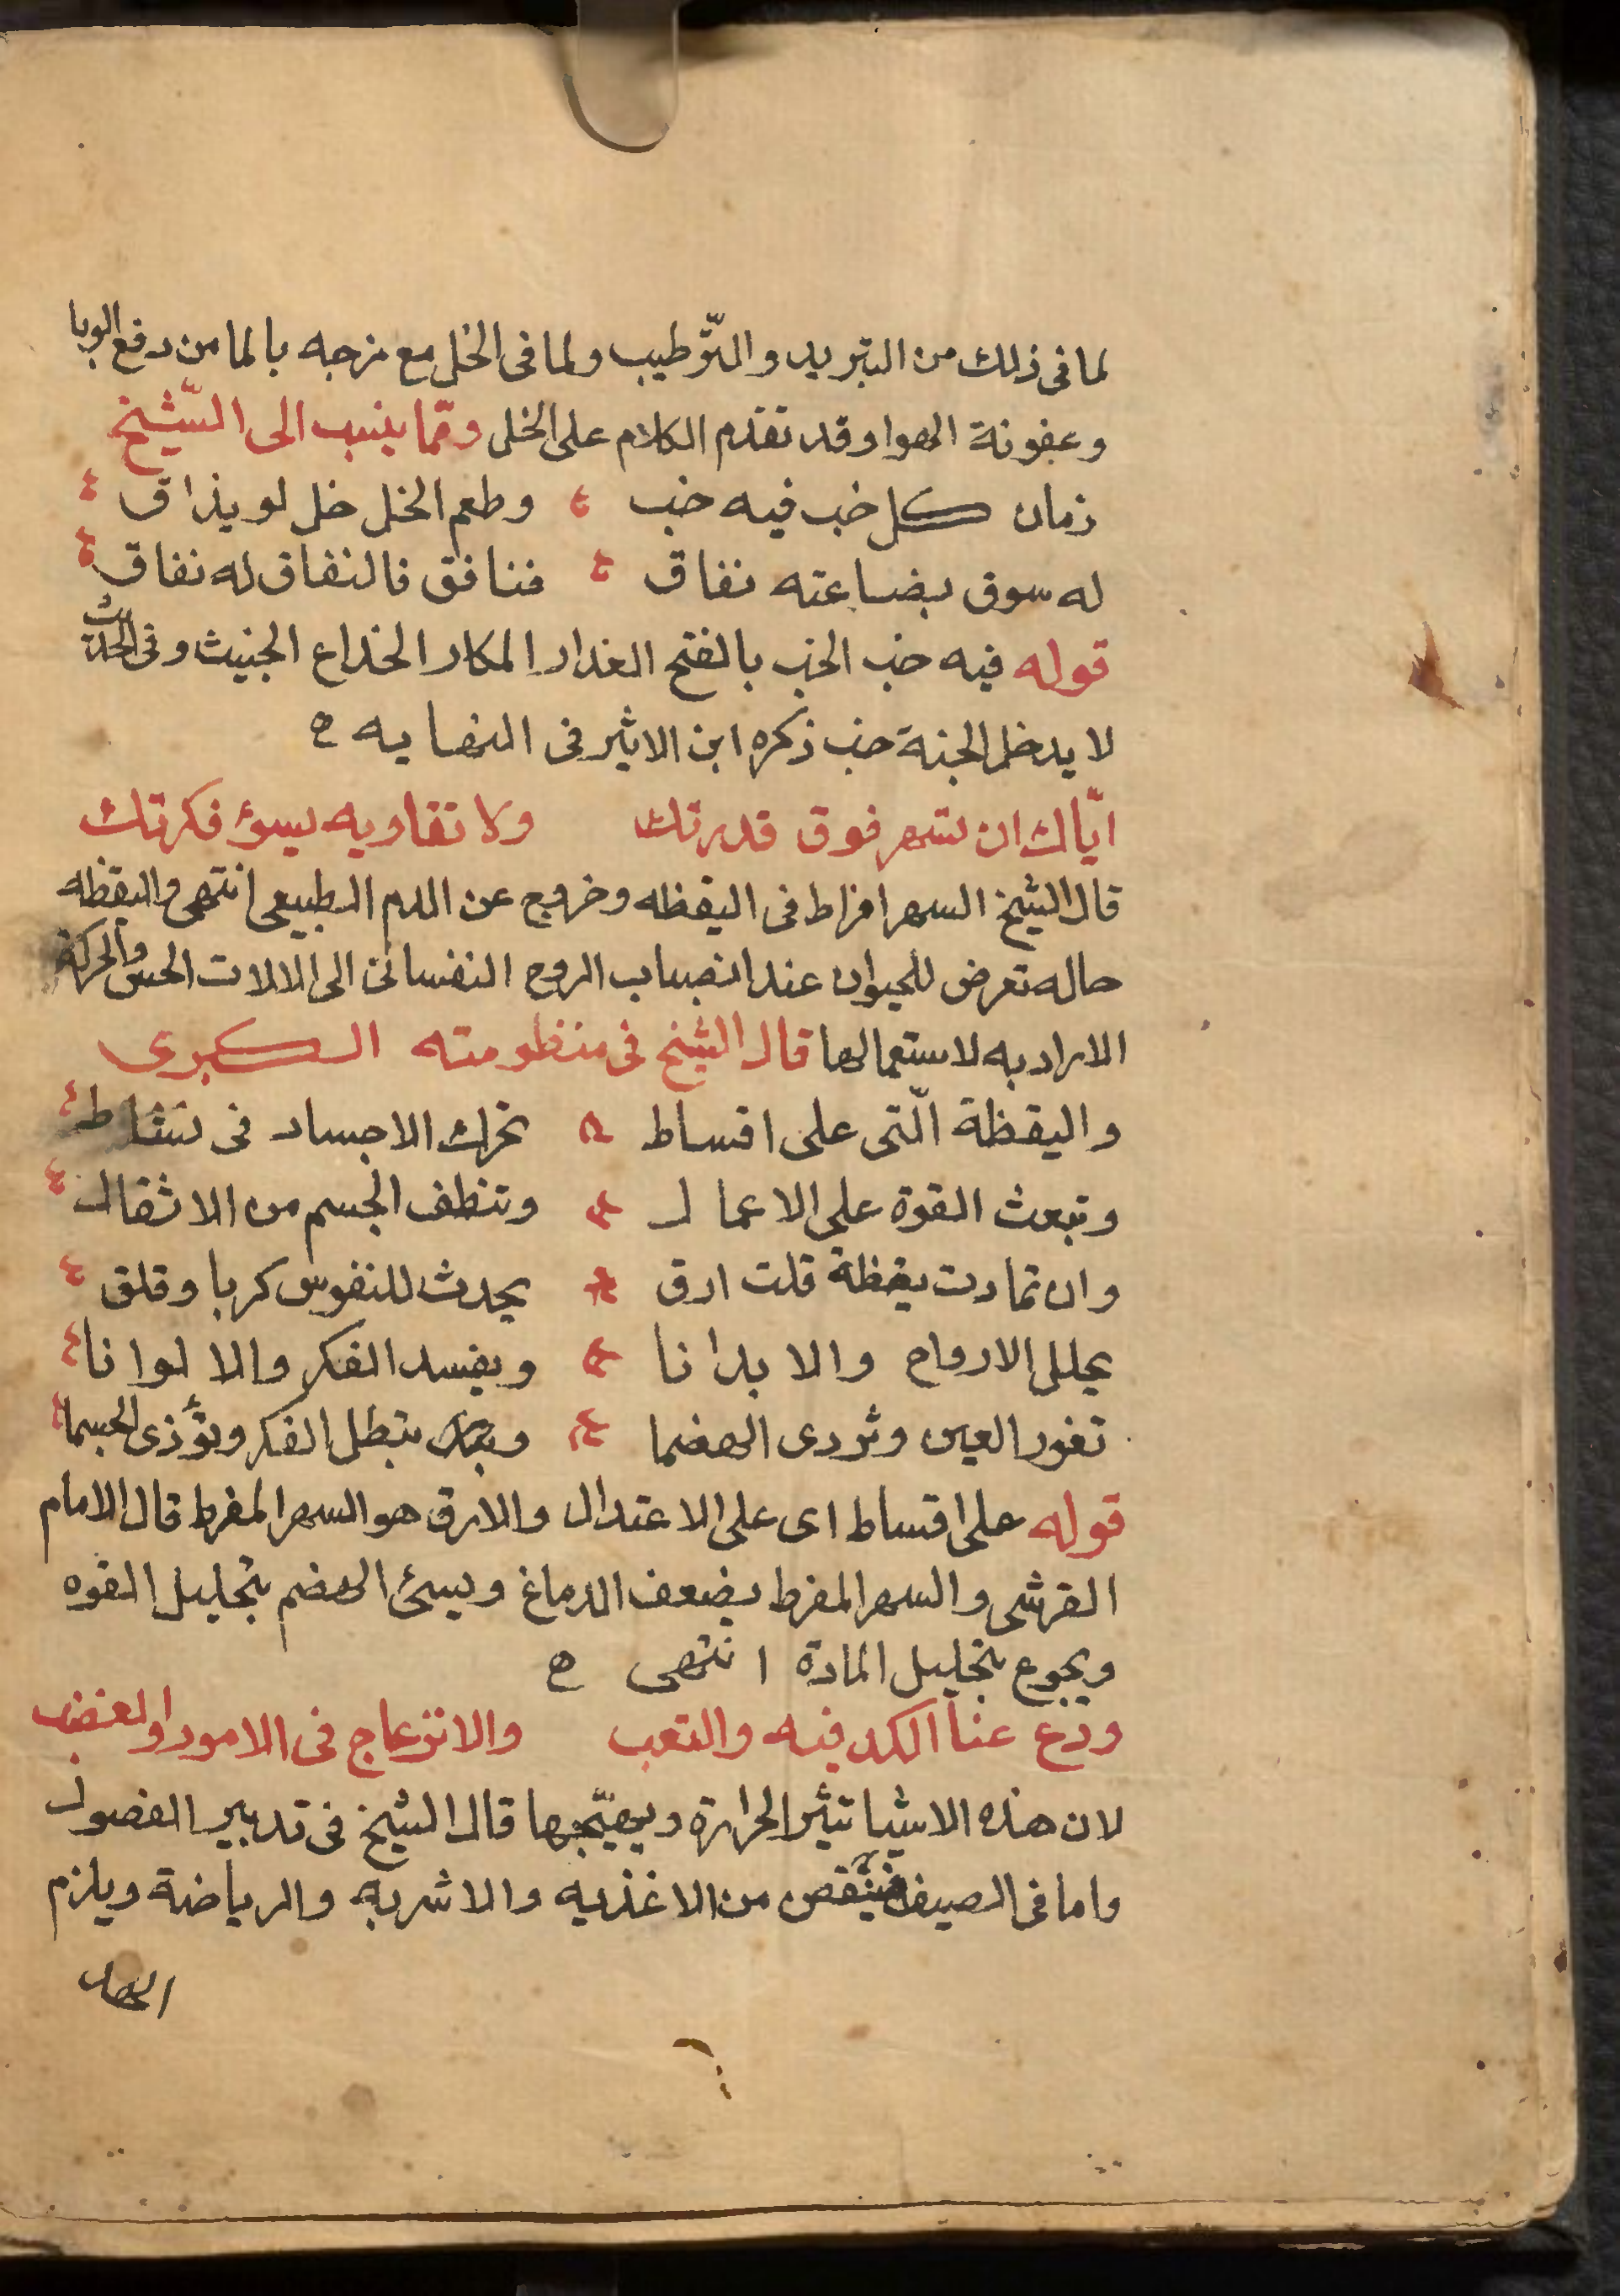 لما فى ذلك من التبريد والتّرطيب ولما فى الخل مع مزجه بالما من دفع الوبا
وعفونة الهوا وقد تقدم الكلام على الخل وممّا ينسب الى الشّيخ
زمان كل خب فيه خب وطعم الخل خل لو يذاق
له سوق بضاعته نفاق فنافق فالنفاق له نفاق
قوله فيه خب الخب بالفتح الغدار المكار الخداع الخبيث وفى الحديث
لا يدخل الجنة خب ذكره ابن الاثير فى النهايه ه
ايّاك ان تسهر فوق قدرتك ولا تقاويه بسوء فكرتك
قال الشيخ السهر افراط فى اليقظه وخروج عن الامر الطبيعى انتهى واليقظه
حاله تعرض للحيوان عند انصباب الروح النفسانى الى الالات الحس والحركة
الاراديه لاستعمالها قال الشيخ فى منظومته الكبرى
واليقظة الّتى على اقساط تحرك الاجساد فى نشاط
وتبعث القوة على الاعمال وتنظف الجسم من الاثقال
وان تمادت يقظة قلت ارق يحدث للنفوس كربا وقلق
يحلل الارواح والابدانا ويفسد الفكر والالوانا
تغور العين وتردى الهضما وتبطل الفكر وتؤذى الجسما
قوله على اقساط اى على الاعتدال والارق هو السهر المفرط قال الامام
القرشى والسهر المفرط يضعف الدماغ ويسئ الهضم بتحليل القوه
ويجوع بتحليل المادة انتهى ه
ودع عنا الكد فيه والتعب والانزعاج فى الامور والغضب
لان هذه الاشيا تثير الحرارة ويهيّجها قال الشيخ فى تدبير الفصول
واما فى الصيف فينقص من الاغذيه والاشربه والرياضة ويلزم